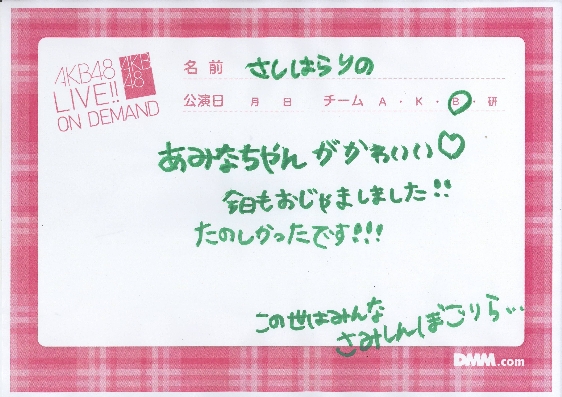 AKB48
LIVE!!
ON DEMAND
AKB
48
名前 さしはらりの
公演日 月 日 チーム A・K・B・研
あみなちゃんがかわいい♡
今日もおじゃましました!!
たのしかったです!!!
この世はみんな
さみしんぼごりら…
DMM.com